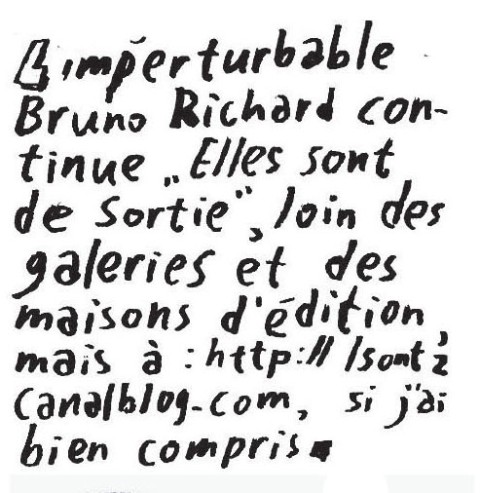 L'imperturbable
Bruno Richard con-
tinue „Elles sont
de sortie", loin des
galeries et des
maisons d'édition,
mais à : http:// lsont2
canalblog.com, si j'ai
bien compris.